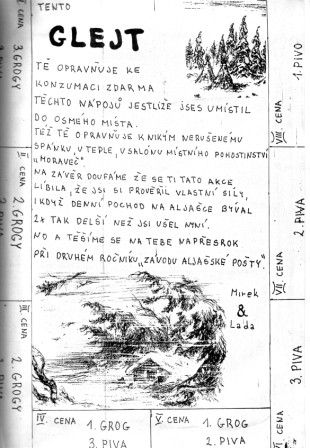 TENTO
GLEJT
TĚ OPRAVŇUJE KE
KONZUMACI ZDARMA
TĚCHTO NÁPOJŮ JESTLIŽE JSES UMÍSTIL
DO OSMÉHO MÍSTA.
TÉŽ TĚ OPRAVŇUJE K NIKÝM NERUŠENÉMU
SPÁNKU V TEPLE, V SALÓNU MÍSTNÍHO POHOSTINSTVÍ
„MORAVEČ".
NA ZÁVĚR DOUFÁME ŽE SE TI TATO AKCE
LÍBILA, ŽE JSI SI PROVĚŘIL VLASTNÍ SÍLY,
I KDYŽ DENNÍ POCHOD NA ALJAŠCE BÝVAL
2x TAK DELŠÍ NEŽ JSI UŠEL NYNÍ.
NO A TĚŠÍME SE NA TEBE NAPŘESROK
PŘI DRUHÉM ROČNÍKU „ZÁVODU ALJAŠSKÉ POŠTY"
Mirek
&
Laďa
CENA
3. GROGY
II. CENA
2 GROGY
III. CENA
2. GROGY
IV. CENA
1. GROG
3. PIVA
V. CENA
1. GROG
2. PIVA
3. PIVA
VII. CENA
2. PIVA
VIII. CENA
1. PIVO